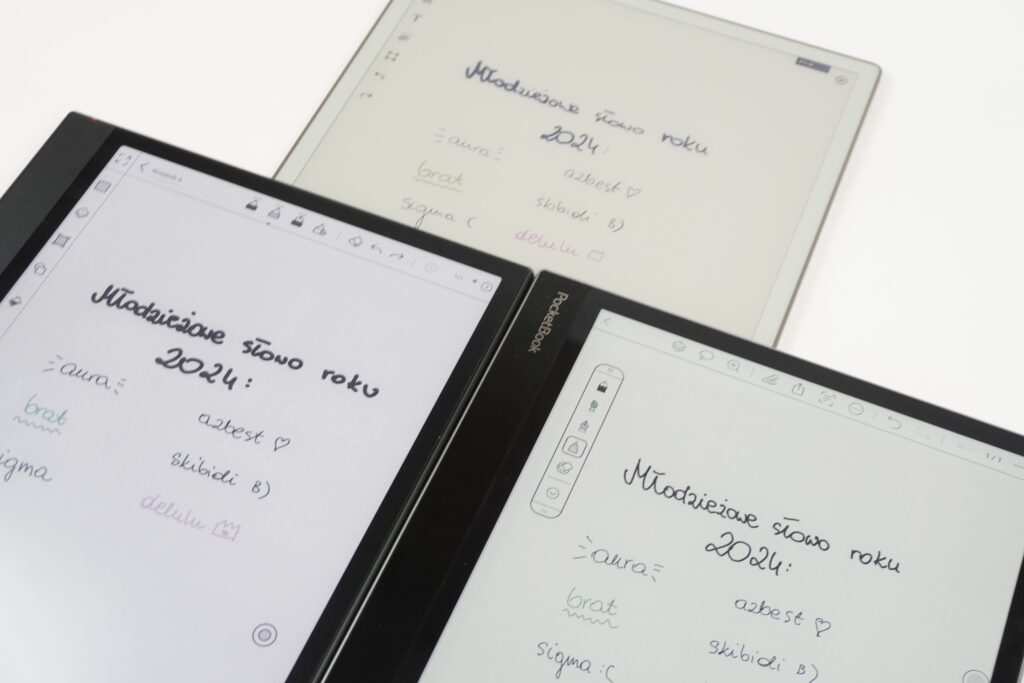 Młodzieżowe słowo roku
2024:
aura
azbest ♡
brat
skibidi B)
sigma :(
delulu
Notatnik 4
1/1
Młodzieżowe słowo roku
2024:
aura
azbest ♡
brat
skibidi B)
igma
delulu
PocketBook
1/1
Młodzieżowe słowo roku
2024:
aura
azbest ♡
brat
skibidi B)
sigma :(